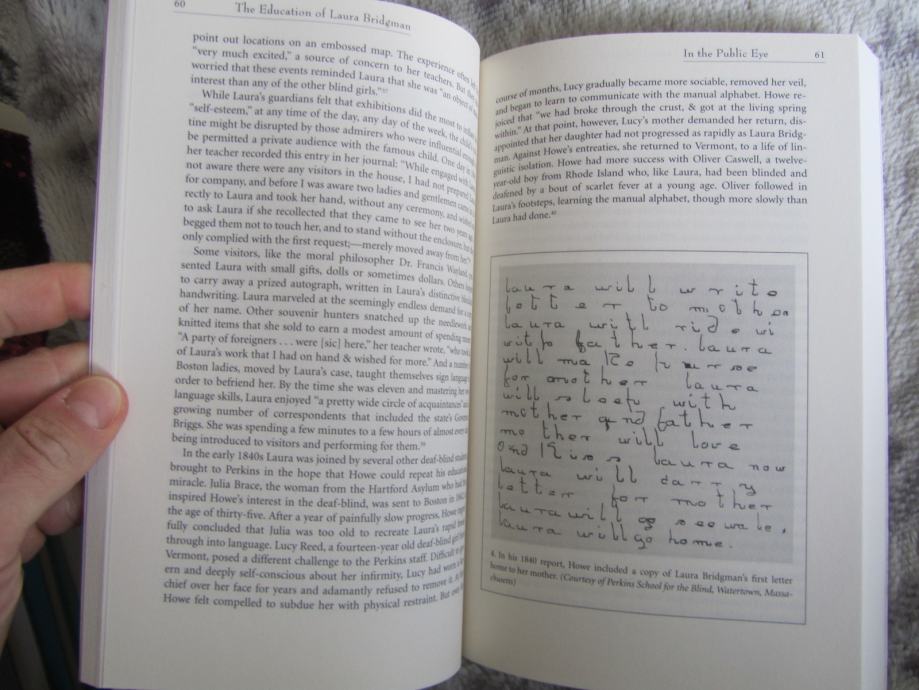 60
The Education of Laura Bridgman
point out locations on an embossed map. The experience often
"very much excited," a source of concern to her teachers. But
worried that these events reminded Laura that she was "an object
interest than any of the other blind girls."³⁷
While Laura's guardians felt that exhibitions did the most to
"self-esteem," at any time of the day, any day of the week, the child's
tine might be disrupted by those admirers who were influential enough
be permitted a private audience with the famous child. One day in
her teacher recorded this entry in her journal: "While engaged with
not aware there were any visitors in the house, I had not prepared
for company, and before I was aware two ladies and gentlemen came
rectly to Laura and took her hand, without any ceremony, and
to ask Laura if she recollected that they came to see her two years
begged them not to touch her, and to stand without the enclosure, but
only complied with the first request;—merely moved away from her."
Some visitors, like the moral philosopher Dr. Francis Wayland,
sented Laura with small gifts, dolls or sometimes dollars. Others
to carry away a prized autograph, written in Laura's distinctive
handwriting. Laura marveled at the seemingly endless demand for
of her name. Other souvenir hunters snatched up the needlework
knitted items that she sold to earn a modest amount of spending
"A party of foreigners . . . were [sic] here," her teacher wrote, "who took
of Laura's work that I had on hand & wished for more." And a
Boston ladies, moved by Laura's case, taught themselves sign language
order to befriend her. By the time she was eleven and mastering her
language skills, Laura enjoyed "a pretty wide circle of acquaintances"
growing number of correspondents that included the state's Governor
Briggs. She was spending a few minutes to a few hours of almost every
being introduced to visitors and performing for them.³⁹
In the early 1840s Laura was joined by several other deaf-blind
brought to Perkins in the hope that Howe could repeat his
miracle. Julia Brace, the woman from the Hartford Asylum who had
inspired Howe's interest in the deaf-blind, was sent to Boston in
the age of thirty-five. After a year of painfully slow progress, Howe
fully concluded that Julia was too old to recreate Laura's rapid
through into language. Lucy Reed, a fourteen-year old deaf-blind girl
Vermont, posed a different challenge to the Perkins staff. Difficult to
ern and deeply self-conscious about her infirmity, Lucy had worn a
chief over her face for years and adamantly refused to remove it. At
Howe felt compelled to subdue her with physical restraint. But over
In the Public Eye
61
course of months, Lucy gradually became more sociable, removed her veil,
and began to learn to communicate with the manual alphabet. Howe re-
joiced that "we had broke through the crust, & got at the living spring
within." At that point, however, Lucy's mother demanded her return, dis-
appointed that her daughter had not progressed as rapidly as Laura Bridg-
man. Against Howe's entreaties, she returned to Vermont, to a life of lin-
guistic isolation. Howe had more success with Oliver Caswell, a twelve-
year-old boy from Rhode Island who, like Laura, had been blinded and
deafened by a bout of scarlet fever at a young age. Oliver followed in
Laura's footsteps, learning the manual alphabet, though more slowly than
Laura had done.⁴⁰
laura will write
letter to mother
laura will ride wi
with father. laura
will make purse
for mother laura
will sleep with
mother and father
mother will love
and kiss laura now
laura will carry
letter for mother
laura will go see wale,
laura will go home.
4. In his 1840 report, Howe included a copy of Laura Bridgman's first letter
home to her mother. (Courtesy of Perkins School for the Blind, Watertown, Massa-
chusetts)